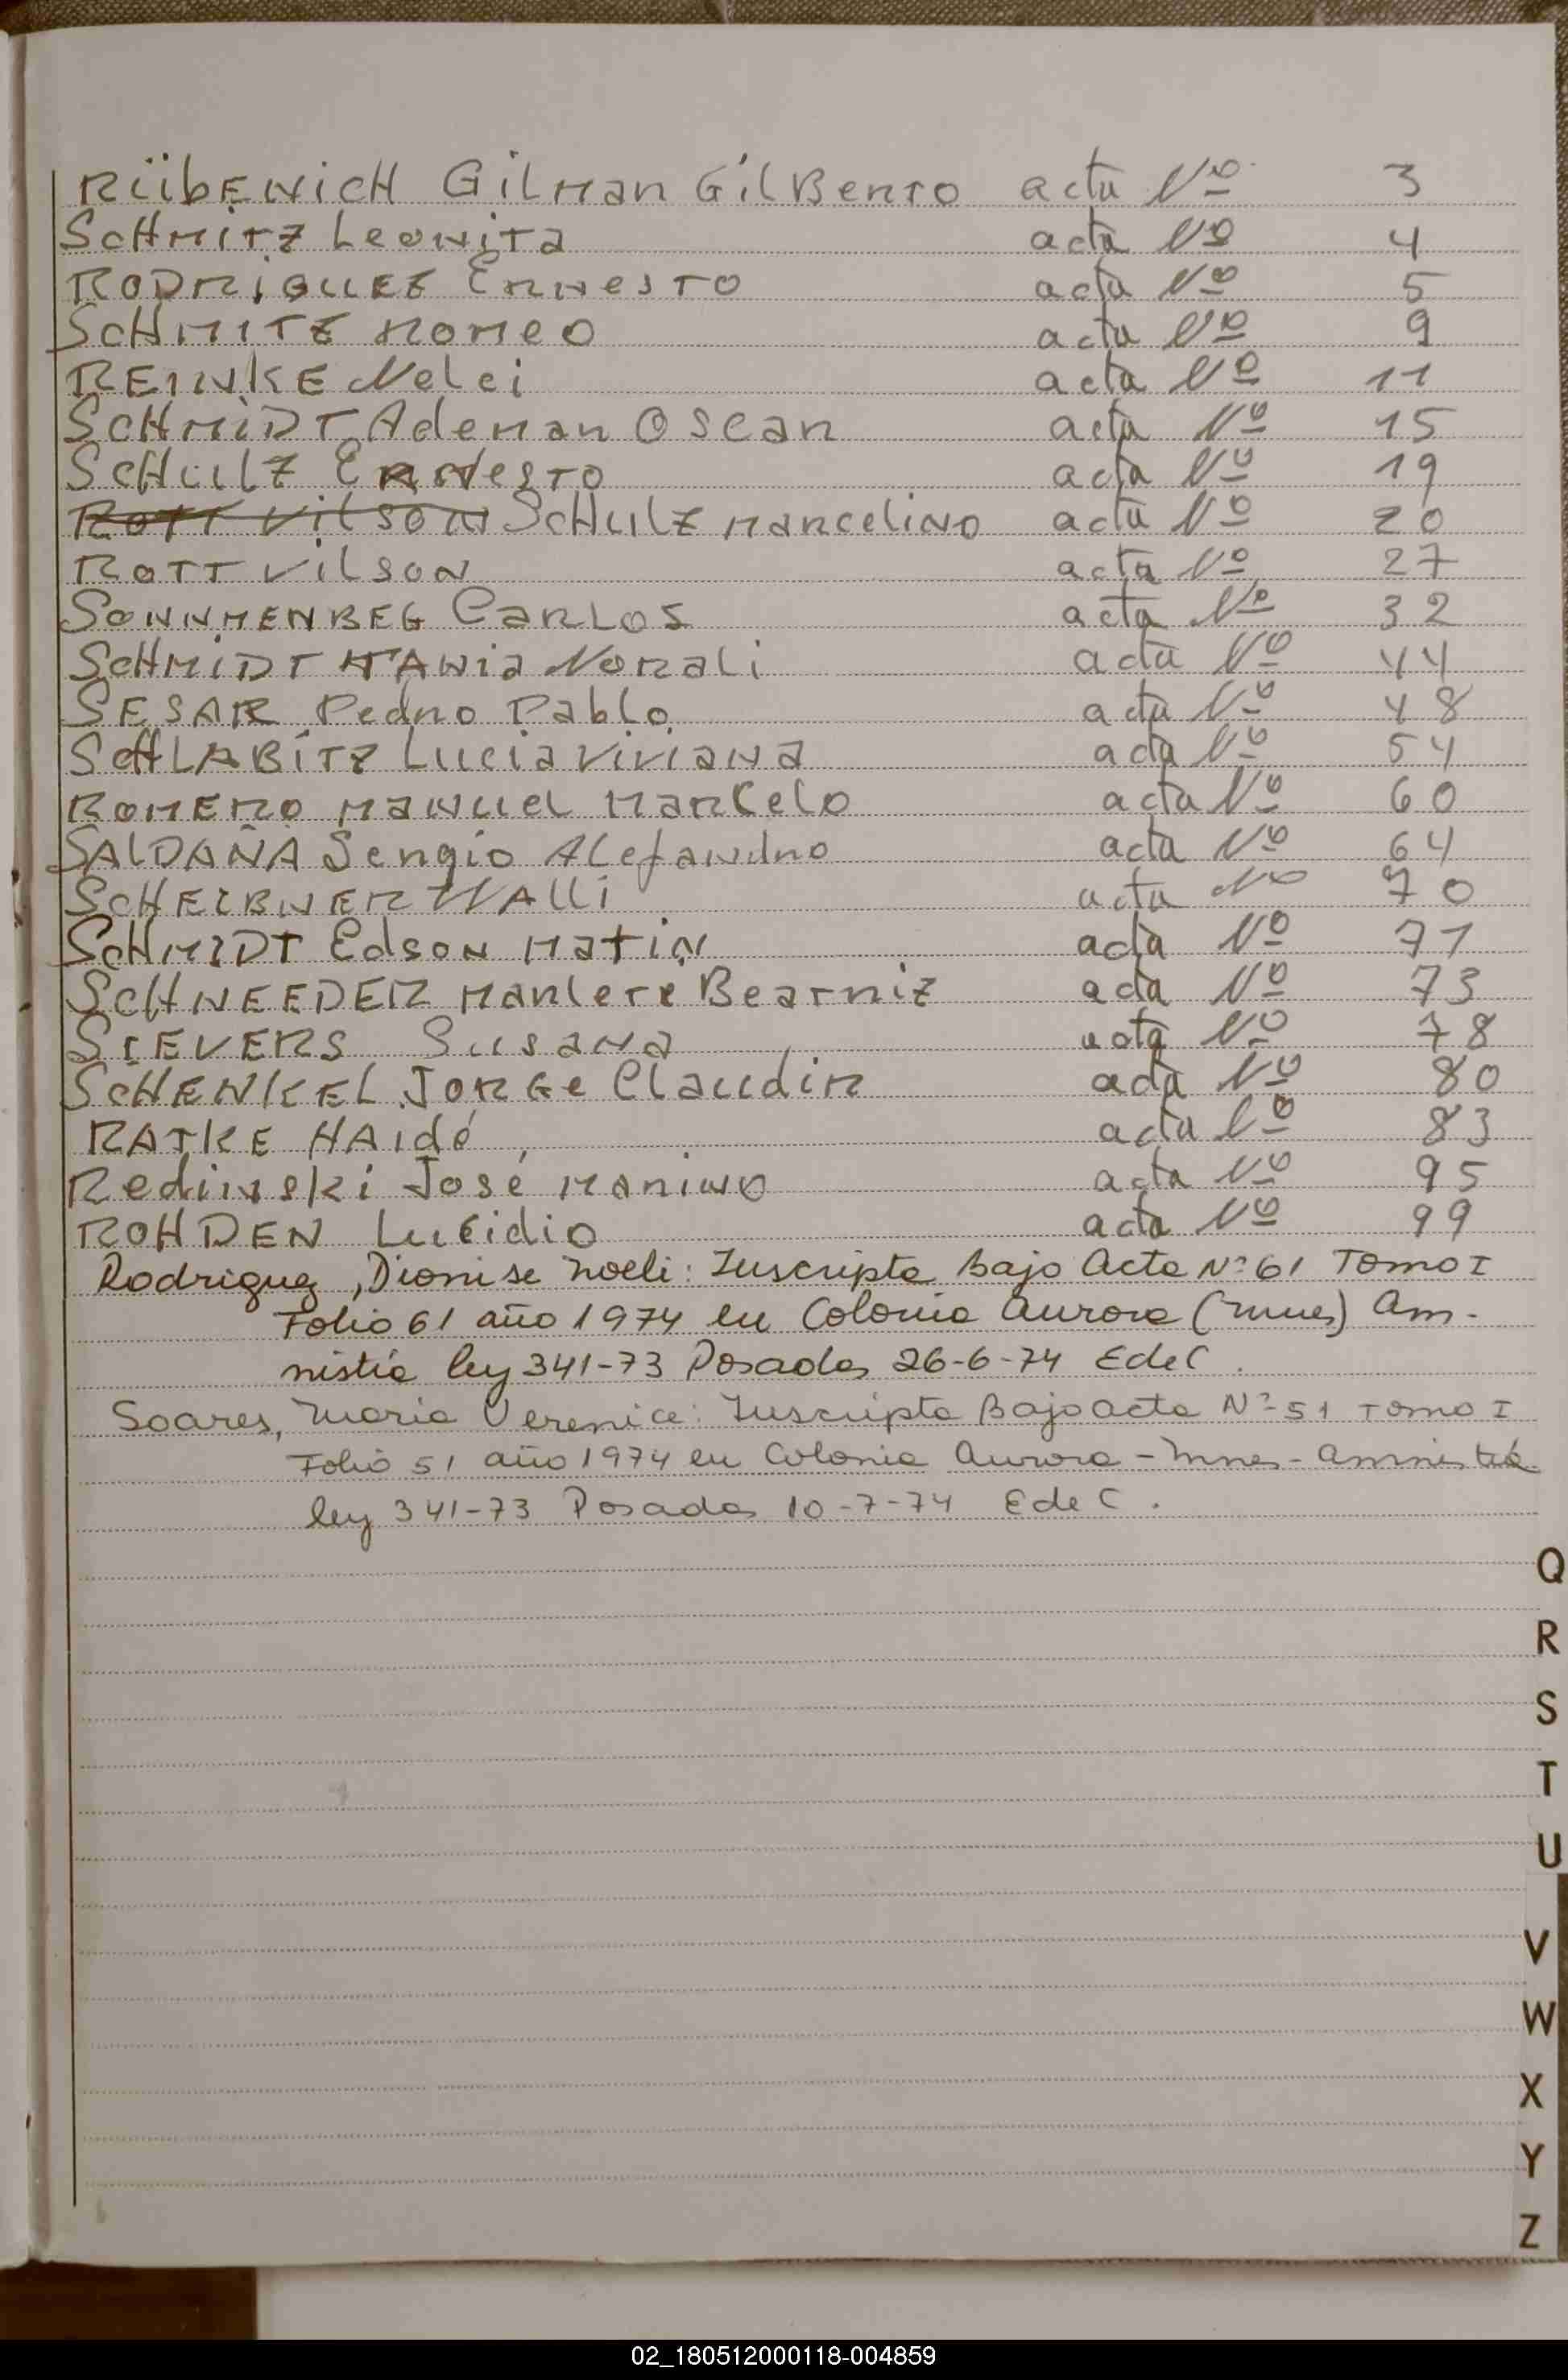 RÜbENiCH GiLMar GiLBerto acta Nº 3
ScHMiTZ LeoNiTa acta Nº 4
RODRiGUEZ ErNesTO acta Nº 5
ScHMITZ ROMeO acta Nº 9
REINKE Nelci acta Nº 11
ScHMiDT Ademar OScar acta Nº 15
ScHULZ ErNesTO acta Nº 19
RoTT ViLSON ScHULZ Marcelino acta Nº 20
ROTT ViLSON acta Nº 27
SONNMENBEG CaRLOS acta Nº 32
ScHMiDT TANia Norali acta Nº 44
SESAR Pedro Pablo acta Nº 48
ScHLABiTZ Lucia ViViaNa acta Nº 54
ROMERO MaNuel Marcelo acta Nº 60
SALDAÑA Sergio Alejandro acta Nº 64
ScHEIBNER WALLi acta Nº 70
ScHMIDT EdsoN MatiN acta Nº 71
ScHNEEDER Marlere Beatriz acta Nº 73
SIEVERS SusaNa acta Nº 78
ScHENKEL JORGe Claudir acta Nº 80
RATKE HAIdé acta Nº 83
Redinski José Mariano acta Nº 95
ROHDEN Lucidio acta Nº 99
Rodriguez, Dionise Noeli: Inscripta Bajo Acta Nº 61 Tomo I
Folio 61 año 1974 en Colonia Aurora (Mnes) Am-
nistia ley 341-73 Posadas 26-6-74 EdeC.
Soares, Maria Verenice: Inscripta Bajo acta Nº 51 Tomo I
Folio 51 año 1974 en Colonia Aurora - Mnes - Amnistia
ley 341-73 Posadas 10-7-74 EdeC.
Q
R
S
T
U
V
W
X
Y
Z
02_180512000118-004859